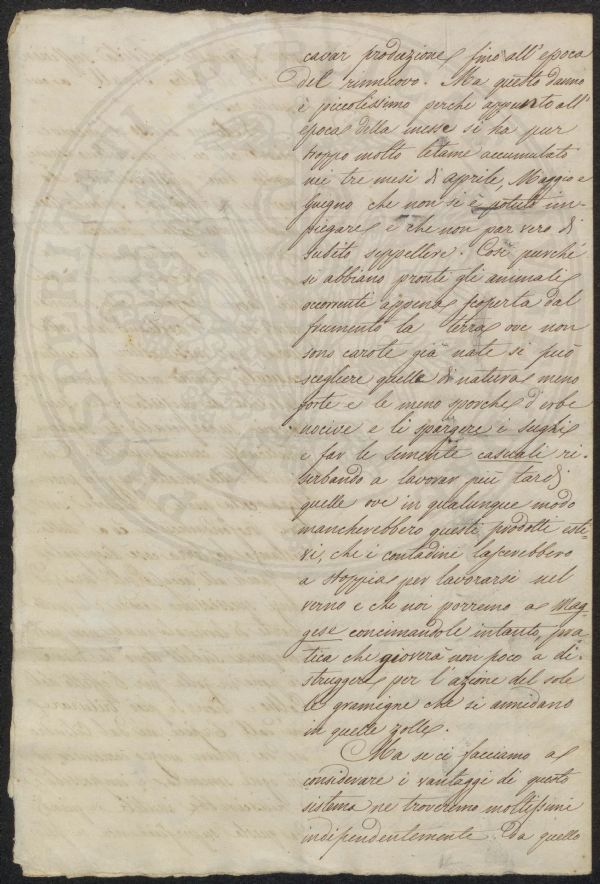 cavar produzione fino all'epoca
del rinnuovo. Ma questo danno
è piccolissimo perchè appunto all'
epoca della messe si ha pur
troppo molto letame accumulato
nei tre mesi di aprile, Maggio e
Giugno che non si è potuto im-
piegare e che non par vero di
subito seppellire. Così purché
si abbiano pronti gli animali
occorrenti appena scoperta dal
frumento la terra ove non
sono carote già nate si può
scegliere quelle di natura meno
forte e le meno sporche d'erbe
nocive e lì spargere i sughi
e far le semente casuali ri-
serbando a lavorar più tardi
quelle ove in qualunque modo
mancherebbero questi prodotti esti-
vi, che i contadini lascerebbero
a stoppia per lavorarsi nel
verno e che noi porremo a Mag-
gese concimandole intanto, pra-
tica che gioverà non poco a di-
struggere per l'azione del sole
le gramigne che si annidano
in quelle zolle.
Ma se ci facciamo a
considerare i vantaggi di questo
sistema ne troveremo moltissimi
indipendentemente da quello